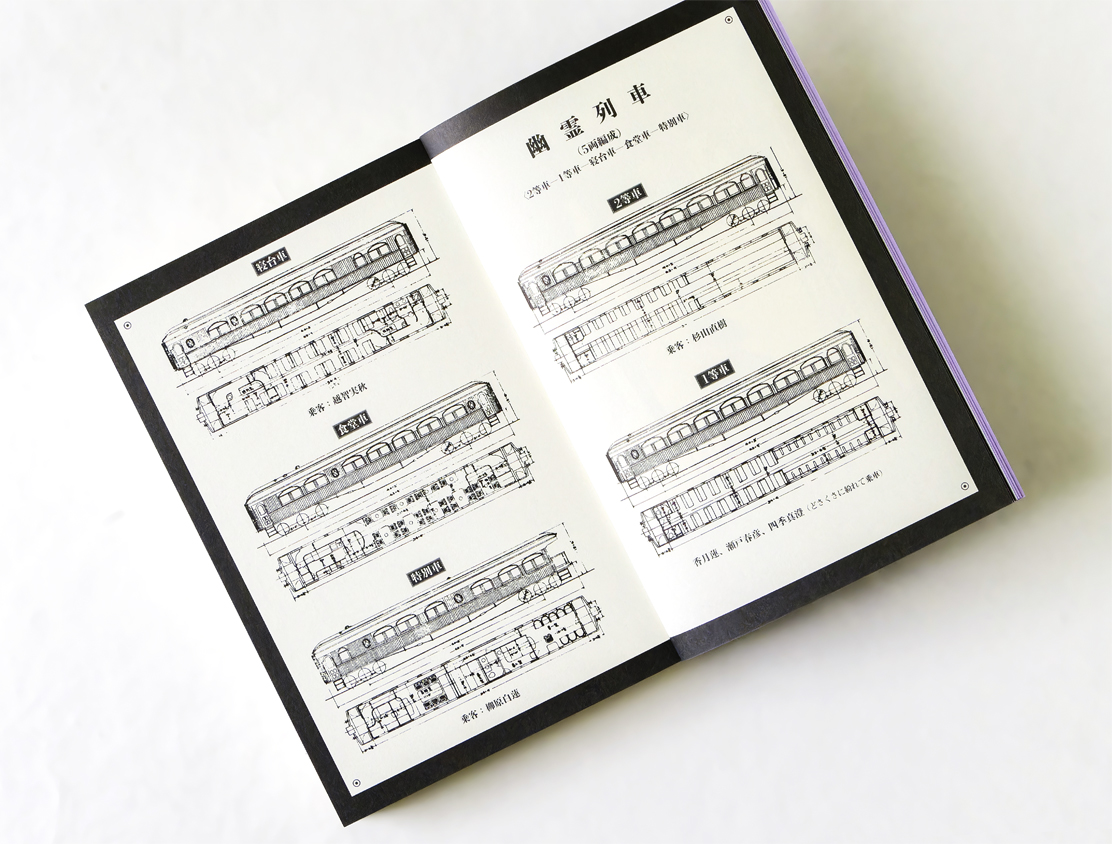 幽霊列車
（5両編成）
〈2等車―1等車―寝台車―食堂車―特別車〉
2等車
乗客：杉山直樹
1等車
香月蓮、瀬戸春彦、四季真澄（どさくさに紛れて乗車）
寝台車
乗客：越智実秋
食堂車
特別車
乗客：柳原白蓮